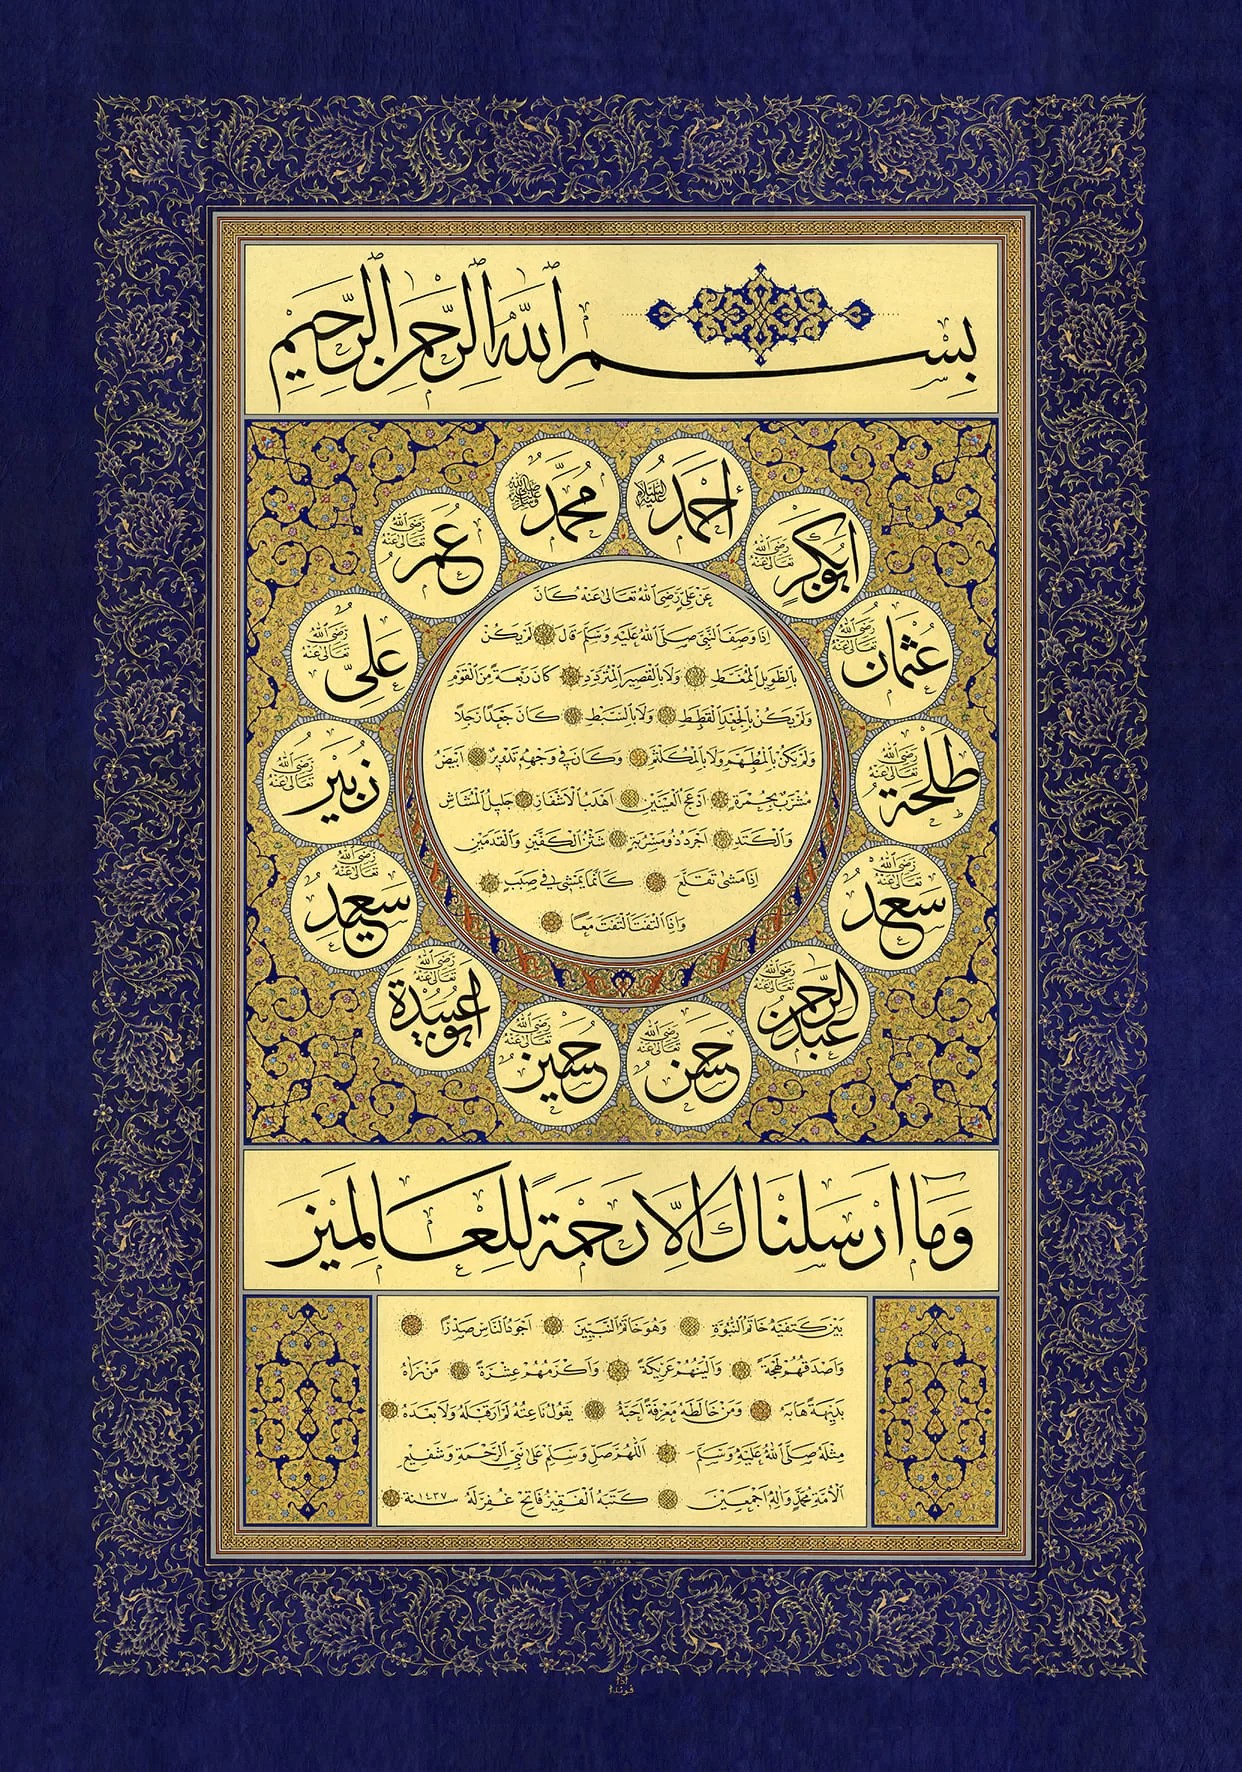 بِسْمِ ٱللّٰهِ ٱلرَّحْمٰنِ ٱلرَّحِيمِ
احمد عليه السلام
محمد صلى الله عليه وسلم
ابوبكر رضى الله تعالى عنه
عمر رضى الله تعالى عنه
عثمان رضى الله تعالى عنه
على رضى الله تعالى عنه
طلحة رضى الله تعالى عنه
زبير رضى الله تعالى عنه
سعد رضى الله تعالى عنه
سعيد رضى الله تعالى عنه
عبدالرحمن رضى الله تعالى عنه
ابوعبيدة رضى الله تعالى عنه
حسن رضى الله تعالى عنه
حسين رضى الله تعالى عنه
عن على رضى الله تعالى عنه كان
اذا وصف النبى صلى الله عليه وسلم قال لم يكن
بالطويل الممغط ولا بالقصير المتردد كان ربعة من القوم
ولم يكن بالجعد القطط ولا بالسبط كان جعدا رجلا
ولم يكن بالمطهم ولا بالمكلثم وكان فى وجهه تدوير ابيض
مشرب بحمرة ادعج العينين اهدب الاشفار جليل المشاش
والكتد اجرد ذو مسربة شثن الكفين والقدمين
اذا مشى تقلع كانما يمشى فى صبب
واذا التفت التفت معا
وما ارسلناك الا رحمة للعالمين
بين كتفيه خاتم النبوة وهو خاتم النبيين اجود الناس صدرا
واصدقهم لهجة والينهم عريكة واكرمهم عشرة من راه
بديهة هابه ومن خالطه معرفة احبه يقول ناعته لم ار قبله ولا بعده
مثله صلى الله عليه وسلم اللهم صل وسلم على نبى الرحمة وشفيع
الامة محمد واله اجمعين كتبه الفقير فاتح غفر له سنة ١٤٣٧